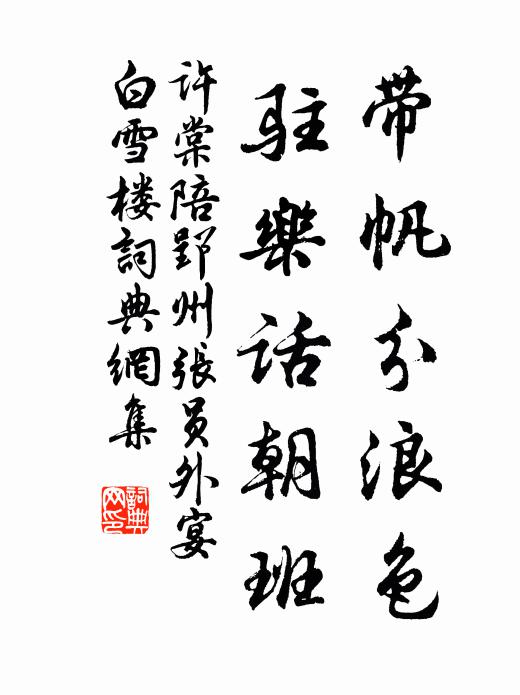 带帆分浪色
驻樂话朝班
许棠陪郢州張员外宴
白雪楼詞典網集
詞典网印